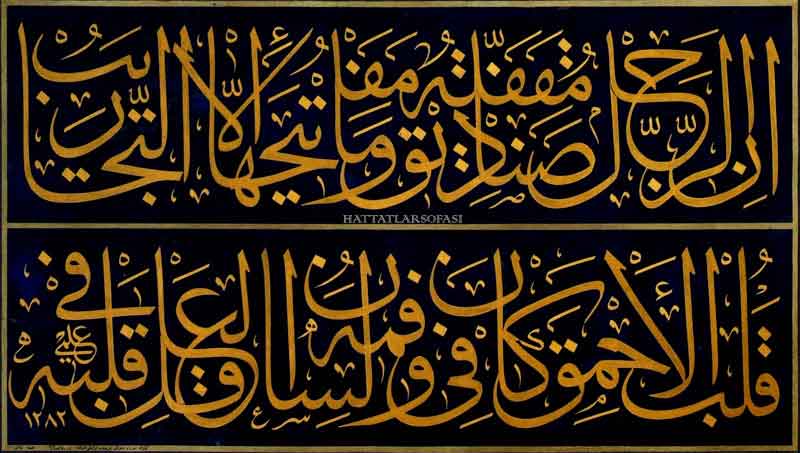 ان الرجال صناديق مقفلة وما مفاتيحها الا التجاريب
HATTATLARSOFASI
قلب الأحمق كان في فمه ولسان العاقل في قلبه
١٢٨٢